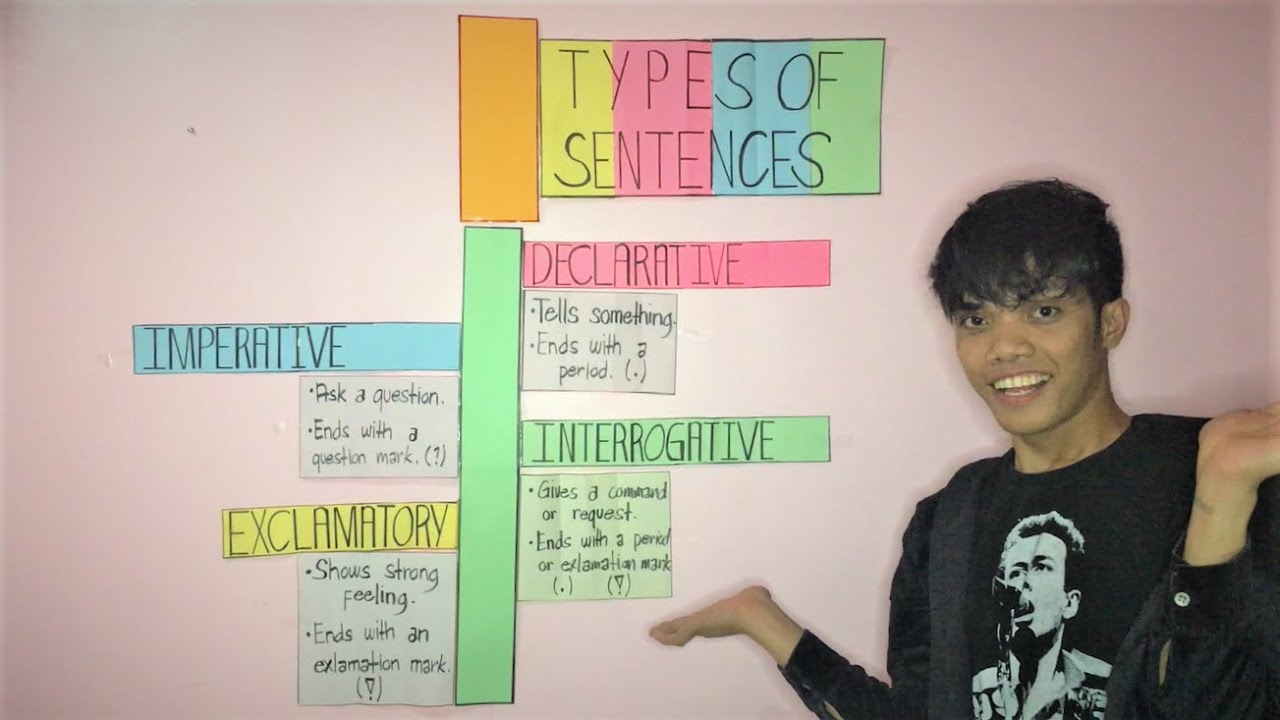 TYPES OF
SENTENCES
DECLARATIVE
• Tells something.
• Ends with a
period. (.)
IMPERATIVE
• Ask a question.
• Ends with a
question mark. (?)
INTERROGATIVE
• Gives a command
or request.
• Ends with a period
or exlamation mark
(.) (!)
EXCLAMATORY
• Shows strong
feeling.
• Ends with an
exlamation mark.
(!)